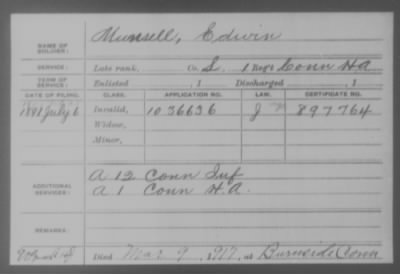 NAME OF SOLDIER: Munsell, Edwin
SERVICE: Late rank, Co. L, 1 Reg't Conn H A
TERM OF SERVICE: Enlisted , 1 Discharged , 1
DATE OF FILING. CLASS. APPLICATION NO. LAW. CERTIFICATE NO.
1891 July 6 Invalid, 1036636 J 897764
Widow,
Minor,
ADDITIONAL SERVICES: A 12 Conn Inf
A 1 Conn H.A.
REMARKS:
Died Mar 9, 1917, at Burnside Conn